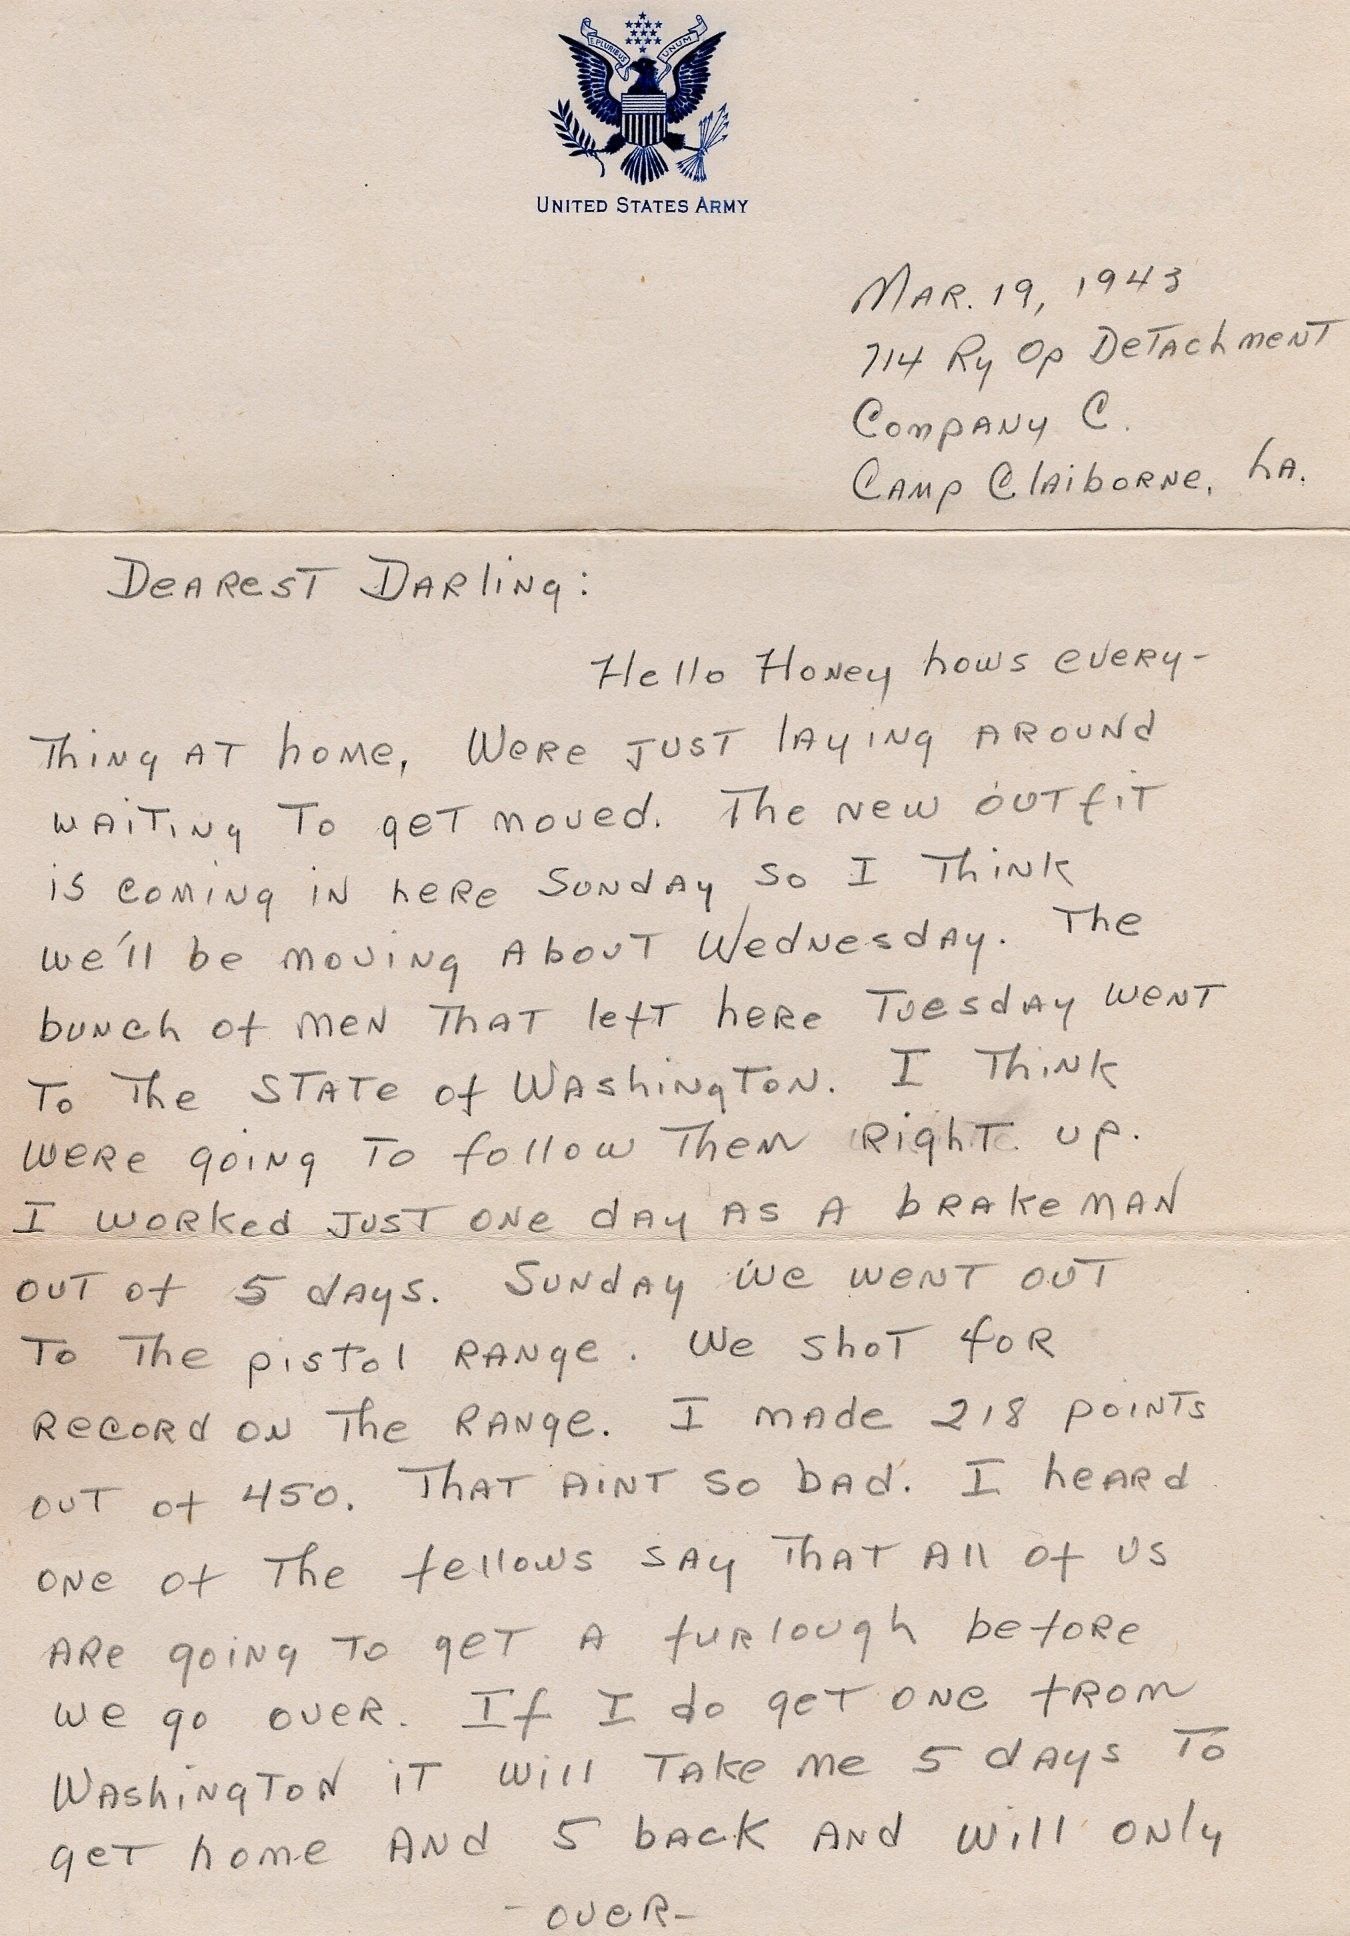 E PLURIBUS UNUM
UNITED STATES ARMY
Mar. 19, 1943
714 Ry Op Detachment
Company C.
Camp Claiborne, La.
Dearest Darling:
Hello Honey hows every-
thing at home, Were just laying around
waiting to get moved. The new outfit
is coming in here Sunday so I think
we'll be moving about Wednesday. The
bunch of men that left here Tuesday went
to the state of Washington. I think
were going to follow them right up.
I worked just one day as a brakeman
out of 5 days. Sunday we went out
to the pistol range. We shot for
record on the range. I made 218 points
out of 450. That aint so bad. I heard
one of the fellows say that all of us
are going to get a furlough before
we go over. If I do get one from
Washington it will take me 5 days to
get home and 5 back and will only
-over-